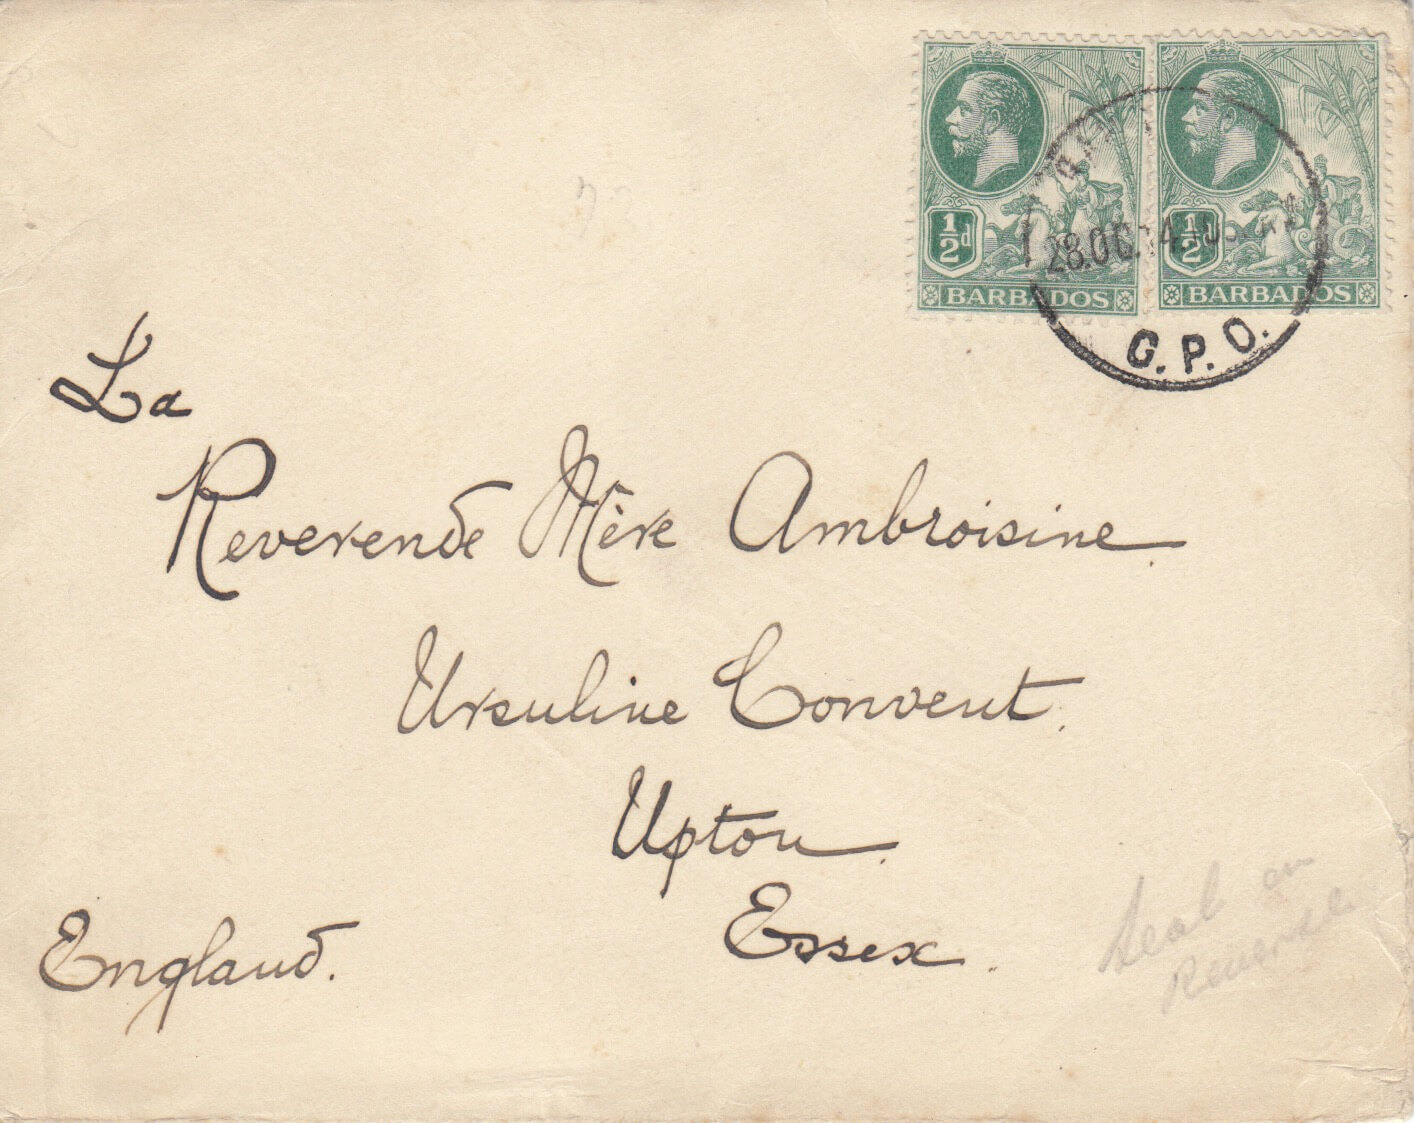 1/2d
BARBADOS
1/2d
BARBADOS
28.OC.14.
G.P.O.
La
Reverende Mère Ambroisine
Ursuline Convent.
Upton.
Essex.
England.
Seal on
Reverse